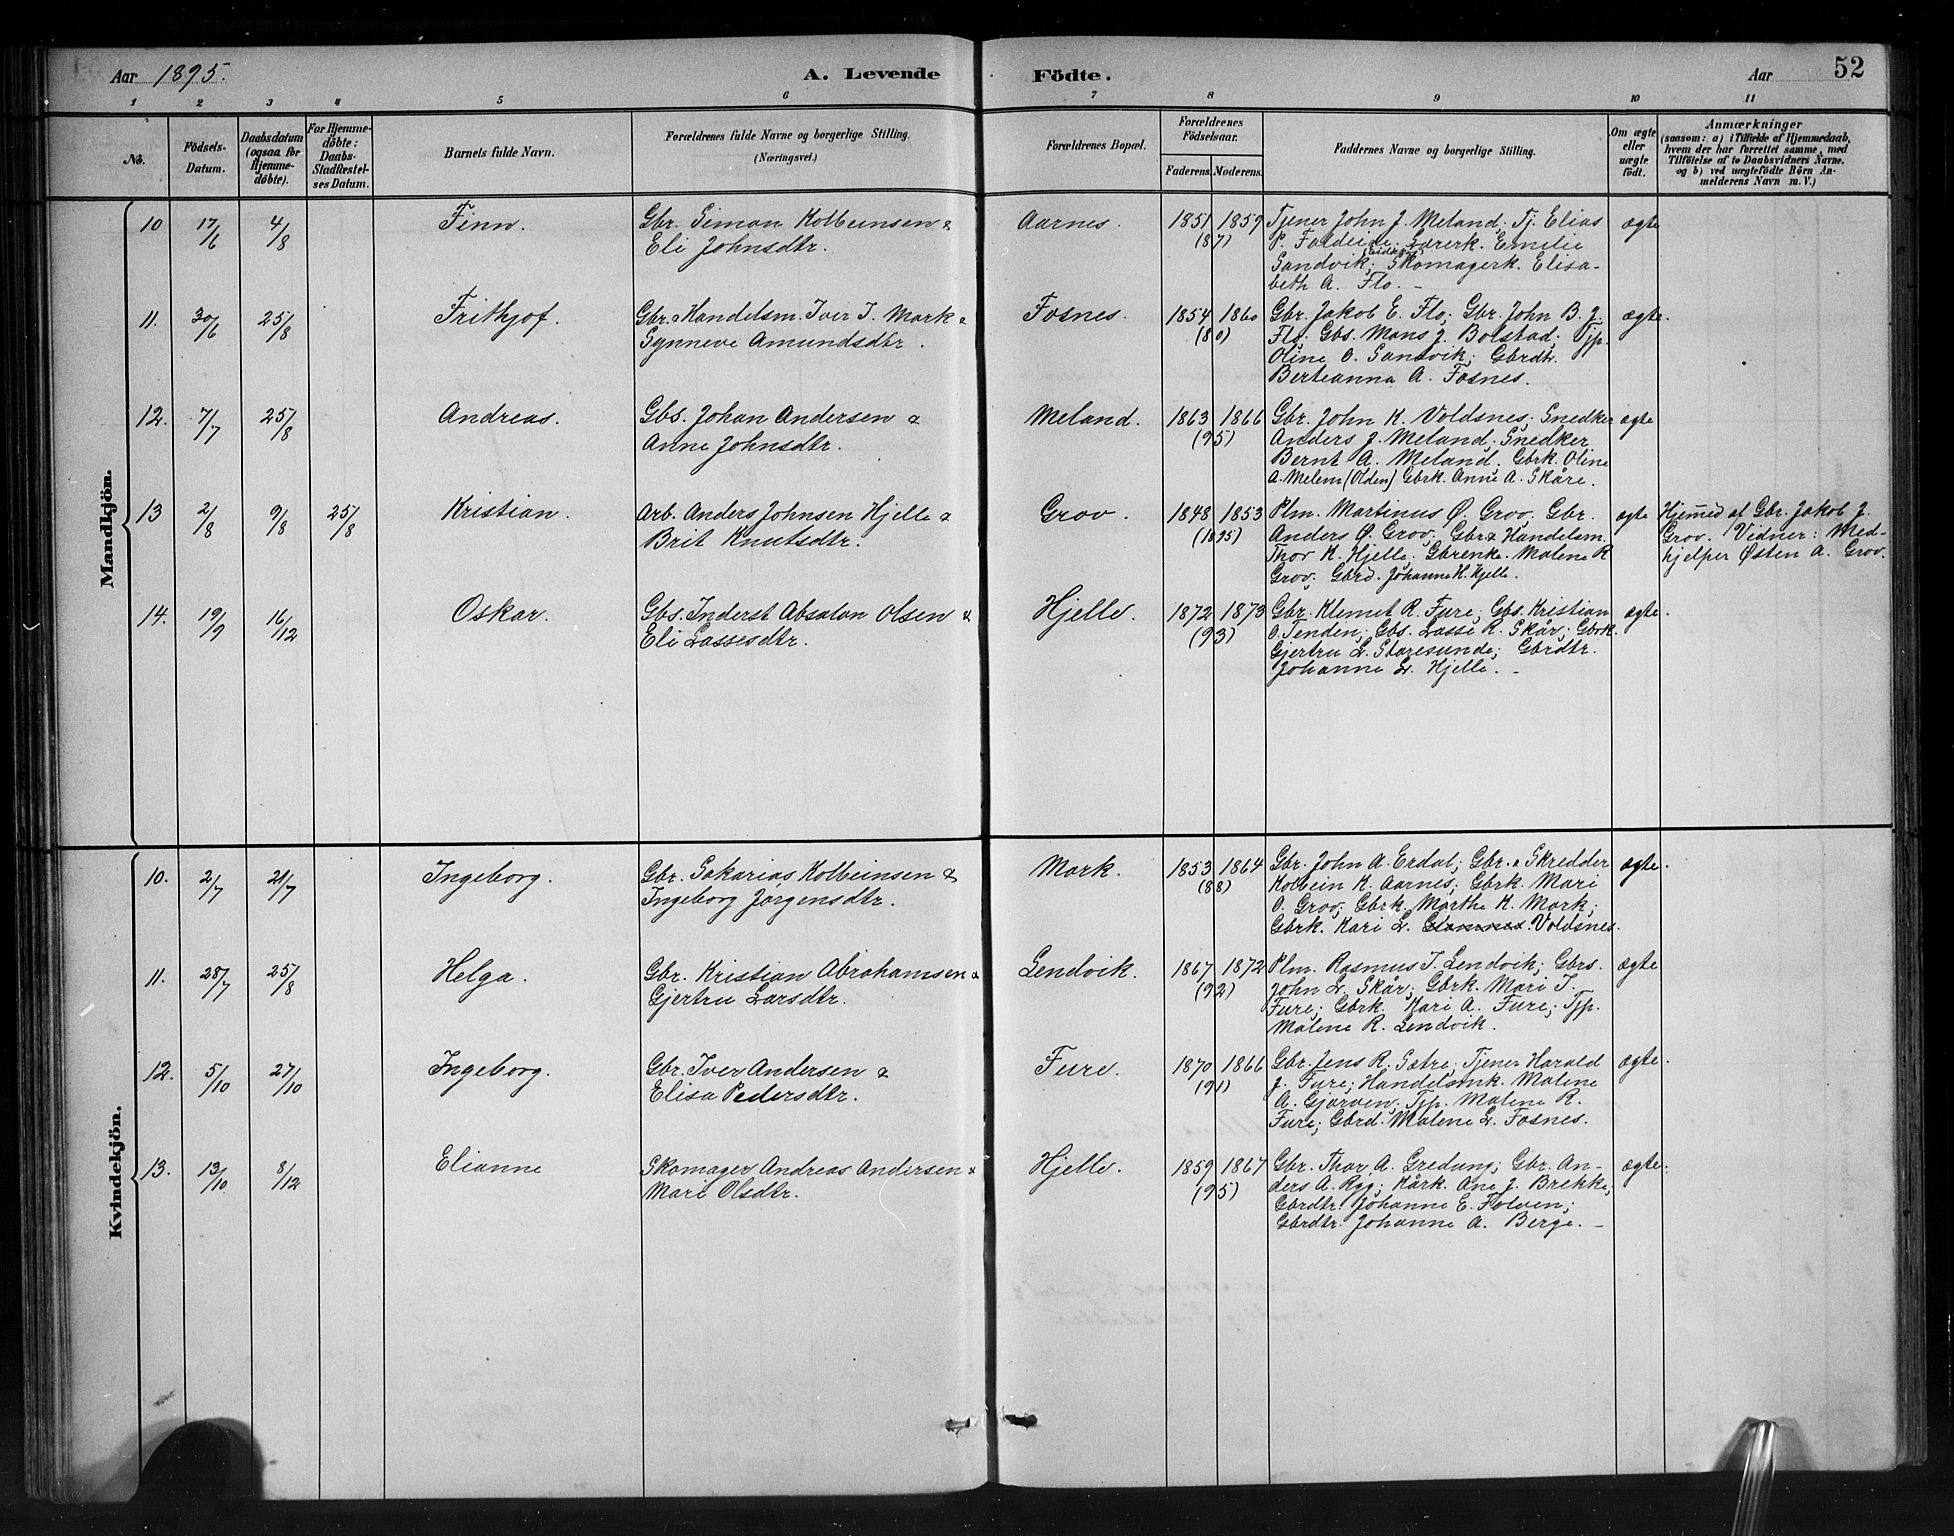 Aar 1895.
A. Levende Födte.
Aar
52
1 2 3 4 5 6 7 8 9 10 11
No.
Födsels-
Datum.
Daabsdatum
(ogsaa for
Hjemme-
döbte).
For Hjemme-
döbte:
Daabs-
Stadfæstel-
ses Datum.
Barnets fulde Navn.
Forældrenes fulde Navne og borgerlige Stilling.
(Næringsvei.)
Forældrenes Bopæl.
Forældrenes
Födselsaar.
Faderens. Moderens.
Faddernes Navne og borgerlige Stilling.
Om ægte
eller
uægte
født.
Anmærkninger
(saasom: a) i Tilfælde af Hjemmedaab,
hvem der har forrettet samme, med
Tilföielse af to Daabsvidners Navne.
og b) ved uægtefödte Börn An-
melderens Navn m. V.)
Mandkjön.
10 17/6 4/8 Finn. Gbr. Simon Kolbeinsen & Aarnes. 1851 1859 Tjener John J. Meland; Tj. Elias ægte
Eli Johnsdtr. (87) P. Faleide; Lærerk. Emilie
Sandvik; Skomagerk. Elisa-
beth A. Flo. –
11. 30/6 25/8 Frithjof. Gbr. & Handelsm. Iver I. Mork & Fosnes. 1854 1860 Gbr. Jakob E. Flo; Gbr. John B. J. ægte.
Synneve Amundsdtr. (80) Flo; Gbs. Mons J. Bolstad; Tjp.
Oline O. Sandvik; Gbrdtr.
Berteanna A. Fosnes.
12. 7/7 25/8 Andreas. Gbs. Johan Andersen & Meland. 1863 1866 Gbr. John K. Voldsnes; Snedker ægte
Anne Johnsdtr. (95) Anders J. Meland. Snedker
Bernt A. Meland. Gbrk. Oline
A. Melem (Olden) Gbrk. Anne A. Skåre.
13 2/8 9/8 25/8 Kristian. Arb. Anders Johnsen Hjelle & Grov. 1848 1853 Plm. Martinus Ø. Grov, Gbr. ægte Hjemmed. af Gbr. Jakob J.
Brit Knutsdtr. (1895) Anders Ø. Grov; Gbr & Handelsm. Grov. Vidner: Med-
Thor K. Hjelle; Gbrenke. Malene R hjelper Østen A. Grov.
Grov; Gbrd. Johanne H. Hjelle.
14. 19/9 16/12 Oskar. Gbs. Inderst Absalon Olsen & Hjelle. 1872 1873 Gbr. Klemet R. Fure; Gbs. Kristian ægte.
Eli Lassesdtr. (93) O. Tenden; Gbs. Lasse R. Skår; Gbrk.
Gjertru L. Staresunde; Gbrdtr.
Johanne L. Hjelle. –
Kvindekjön.
10. 2/7 21/7 Ingeborg. Gbr. Sakarias Kolbeinsen & Mork. 1853 1864 Gbr. John A. Erdal; Gbr. & Skredder ægte.
Ingeborg Jørgensdtr. (88) Kolbein K. Aarnes; Gbrk. Mari
O. Grov; Gbrk. Marthe K. Mork;
Gbrk. Kari L. Voldsnes.
11. 28/7 25/8 Helga. Gbr. Kristian Abrahamsen & Lendvik. 1867 1872 Plm. Rasmus I. Lendvik; Gbrs. ægte
Gjertru Larsdtr. (92) John L. Skår; Gbrk. Mari I.
Fure; Gbrk. Kari A. Fure; Tjp.
Malene R. Lendvik.
12. 5/10 27/10 Ingeborg. Gbr. Iver Andersen & Fure. 1870 1866 Gbr. Jens R. Sætre; Tjener Harald ægte.
Elisa Pedersdtr. (91) J. Fure; Handelsmk. Malene
A. Gjørven; Tjp. Malene R.
Fure; Gbrd. Malene L. Fosnes.
13. 13/10 8/12 Elianne Skomager Andreas Andersen & Hjelle. 1859 1867 Gbr. Thor A. Gredung; Gbr. An- ægte.
Mari Olsdtr. (95) ders A. Ryg; Kårk. Ane J. Brekke;
Gbrdtr. Johanne E. Folven;
Gbrdtr. Johanne A. Berge. –